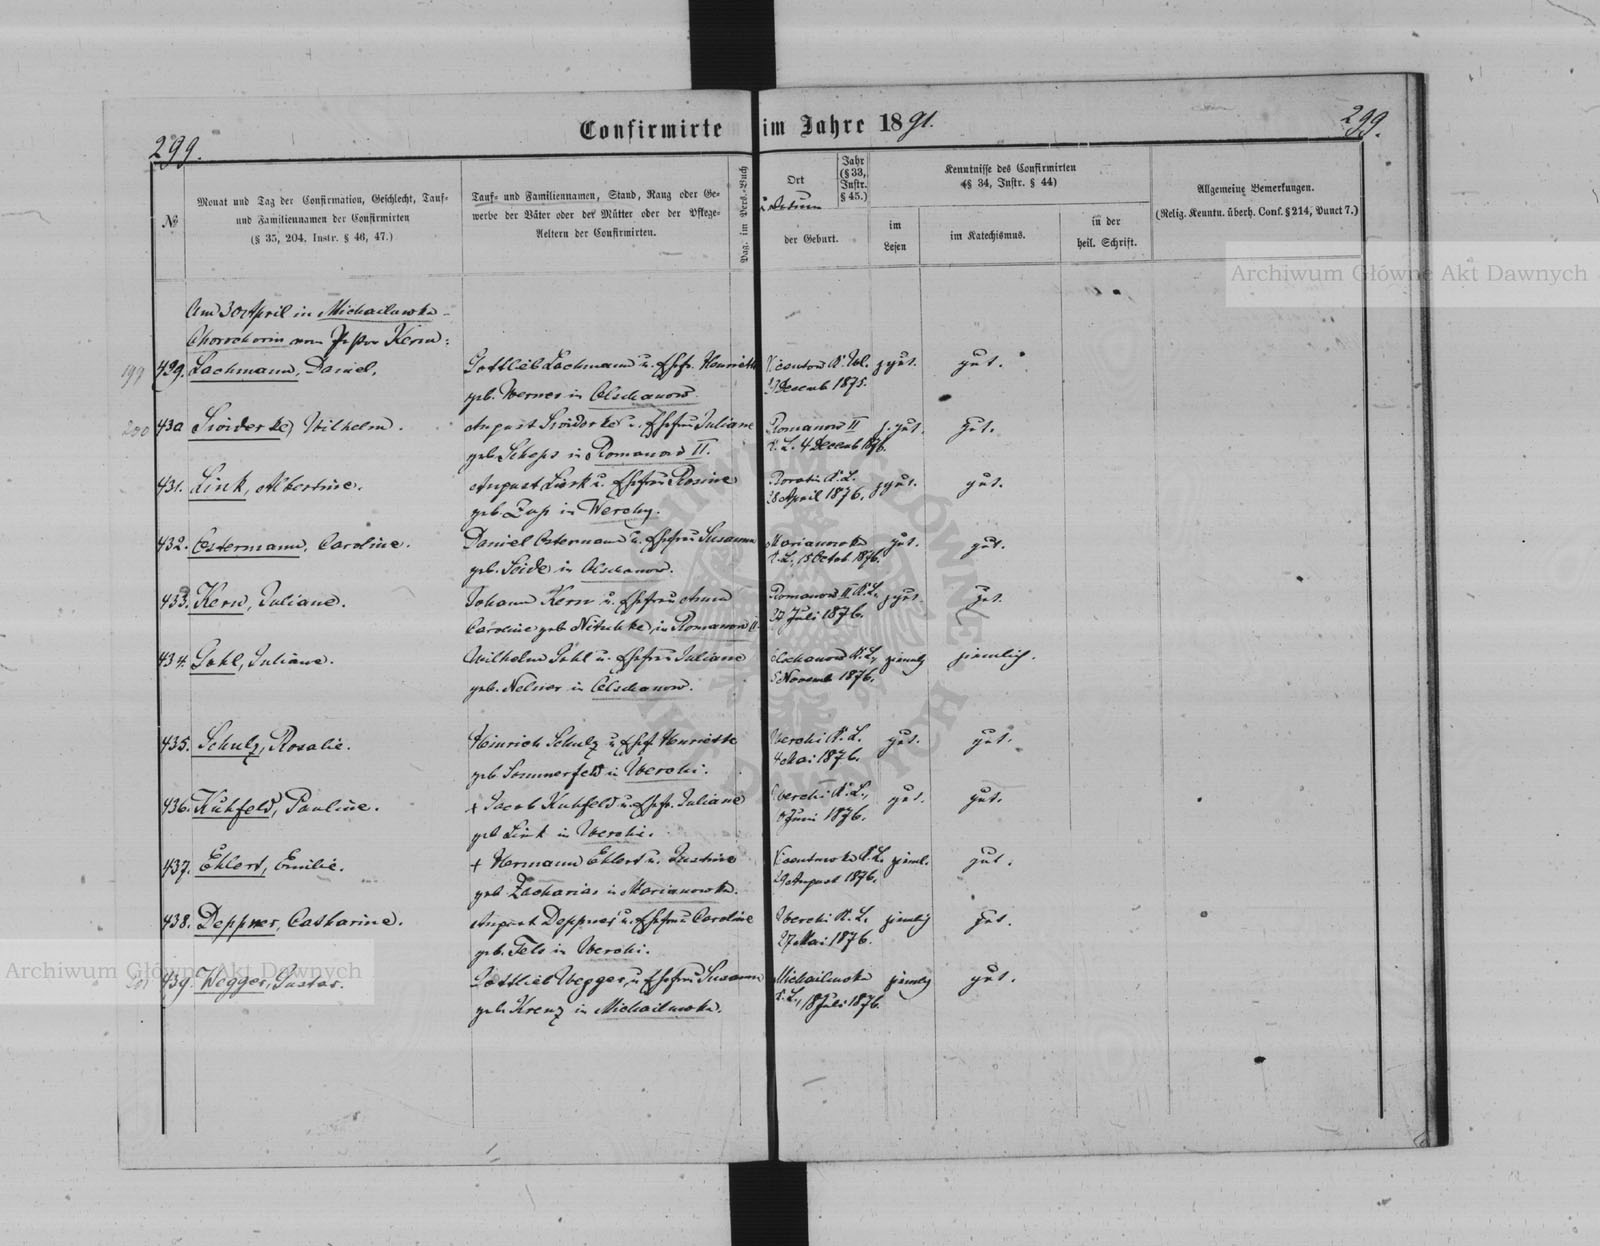 299.
Confirmirte im Jahre 1891.
299.
№
Monat und Tag der Confirmation, Geschlecht, Tauf-
und Familiennamen der Confirmirten
(§ 35, 204, Instr. § 46, 47.)
Tauf- und Familiennamen, Stand, Rang oder Ge-
werbe der Väter oder der Mütter oder der Pflege-
Aeltern der Confirmirten.
Pag. im Pers.-Buch
Ort
u Datum
der Geburt.
Jahr
(§ 33,
Instr.
§ 45.)
Kenntnisse des Confirmirten
(§ 34, Instr. § 44)
im
Lesen
im Katechismus.
in der
heil. Schrift.
Allgemeine Bemerkungen.
(Relig. Kenntn. überh. Conf. § 214, Punct 7.)
Archiwum Główne Akt Dawnych
Am 30 April in Michailowka-
vom Pastor Kern:
199
429. Lachmann, Daniel.
Gottlieb Lachmann u. Ehefr. Henriette
geb. Werner in Olschanow.
Decemb 1875.
z. gut.
gut.
200
430 Wilhelm.
August u. Ehefrau Juliane
geb. Scheps in Romanow II.
Romanow II
K. L. 4 Decemb 1876.
z. gut.
gut.
431. Link, Albertine.
August Link u. Ehefrau Rosine
geb. in Werchy.
K. L.
28 April 1876.
z gut.
gut.
432. Ostermann, Caroline.
Daniel Ostermann u. Ehefrau Susanna
geb. Seide in Olschanow.
Marianowka
K. L., 15 Octob 1876.
gut.
gut.
433. Kern, Juliane.
Johann Kern u. Ehefrau Anna
Caroline geb. Nitschke, in Romanow II.
Romanow II K. L.
27 Juli 1876.
z gut.
gut.
434. Gohl, Juliane.
Wilhelm Gohl u. Ehefrau Juliane
geb. Nelner in Olschanow.
Olschanow K. L.,
5 Novemb 1876.
ziemlig
ziemlich.
435. Schulz, Rosalie.
Heinrich Schulz u. Ehef. Henriette
geb. Sommerfeld in Werchi.
Werchi K. L.
4 Mai 1876.
gut.
gut.
436. Kuhfeld, Pauline.
+ Jacob Kuhfeld u. Ehefr. Juliane
geb. Link in Werchi.
Werchi K. L.,
Juni 1876.
gut.
gut.
437. Ehlert, Emilie.
+ Hermann Ehlert u. Justine
geb. Zacharias in Marianowka.
K. L.
29 August 1876.
zieml.
gut.
438. Deppner, Catharine.
August Deppner u. Ehefrau Caroline
geb. Fels in Werchi.
Werchi K. L.
27 Mai 1876.
ziemlig
gut.
201
439. Wegger, Gustav.
Gottlieb Wegger, u. Ehefrau Susanna
geb. Krenz in Michailowka.
Michailowka
K. L., 18 Juli 1876.
ziemlig
gut.
Archiwum Główne Akt Dawnych
ARCHIWUM GŁÓWNE AKT DAWNYCH